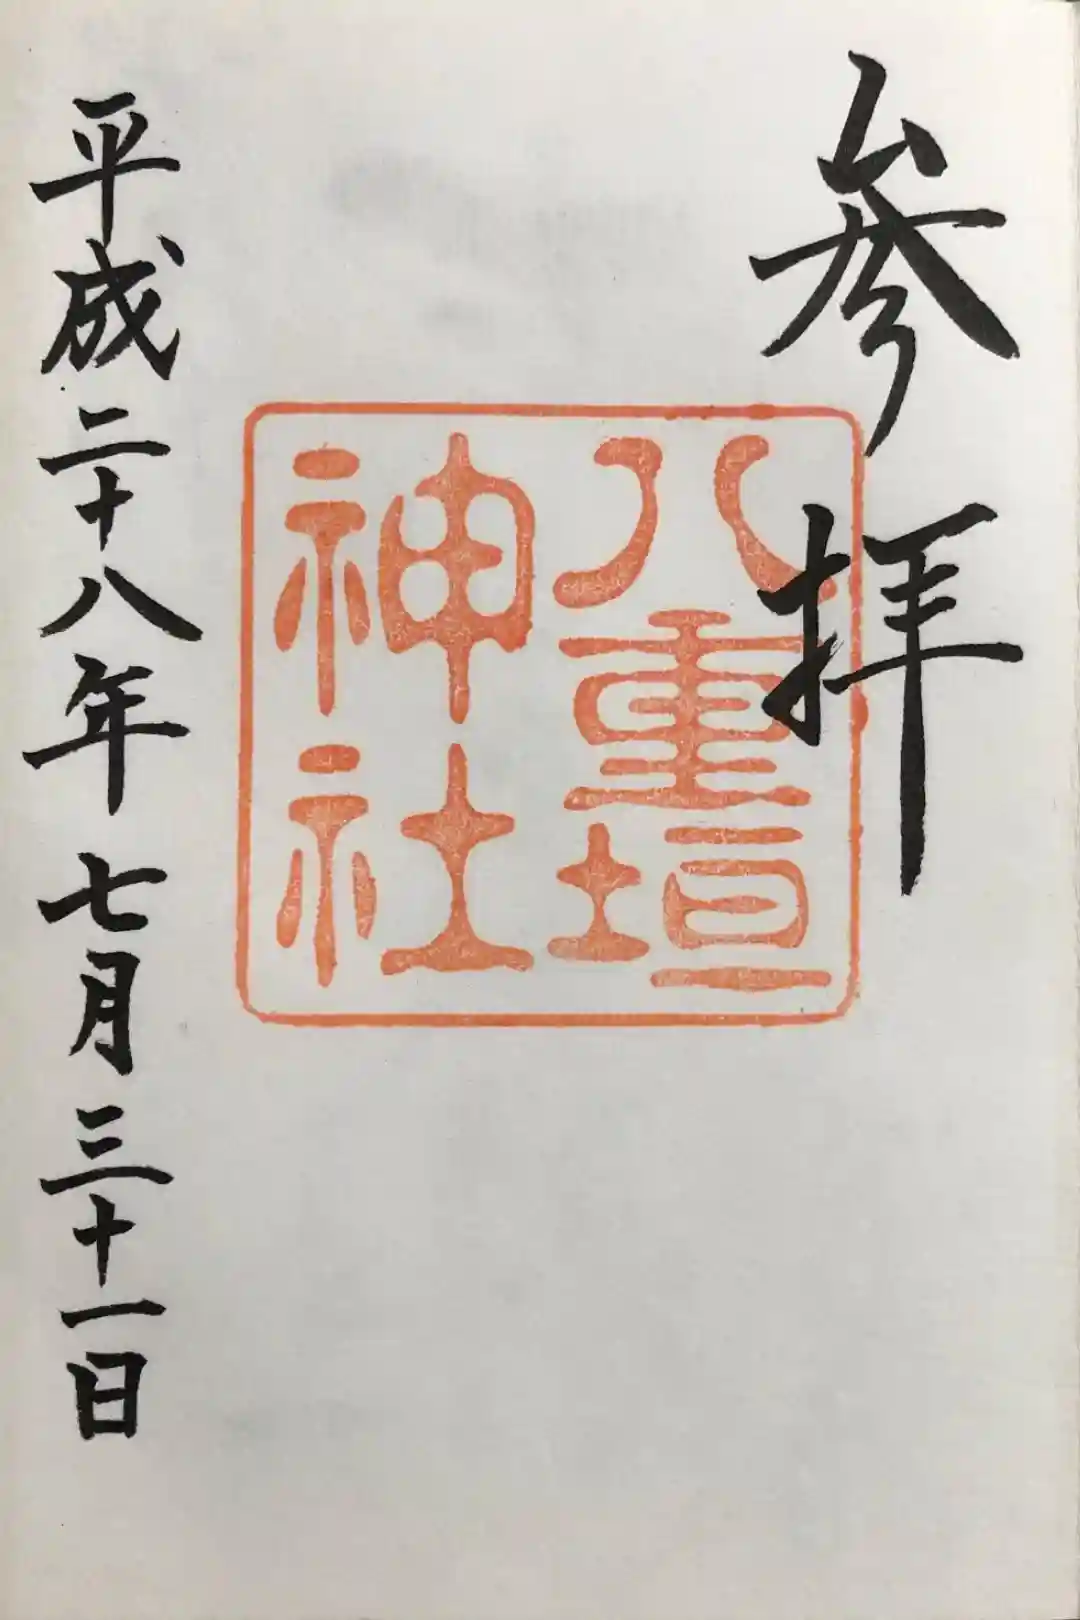 参拝
八重垣
神社
平成二十八年七月三十一日